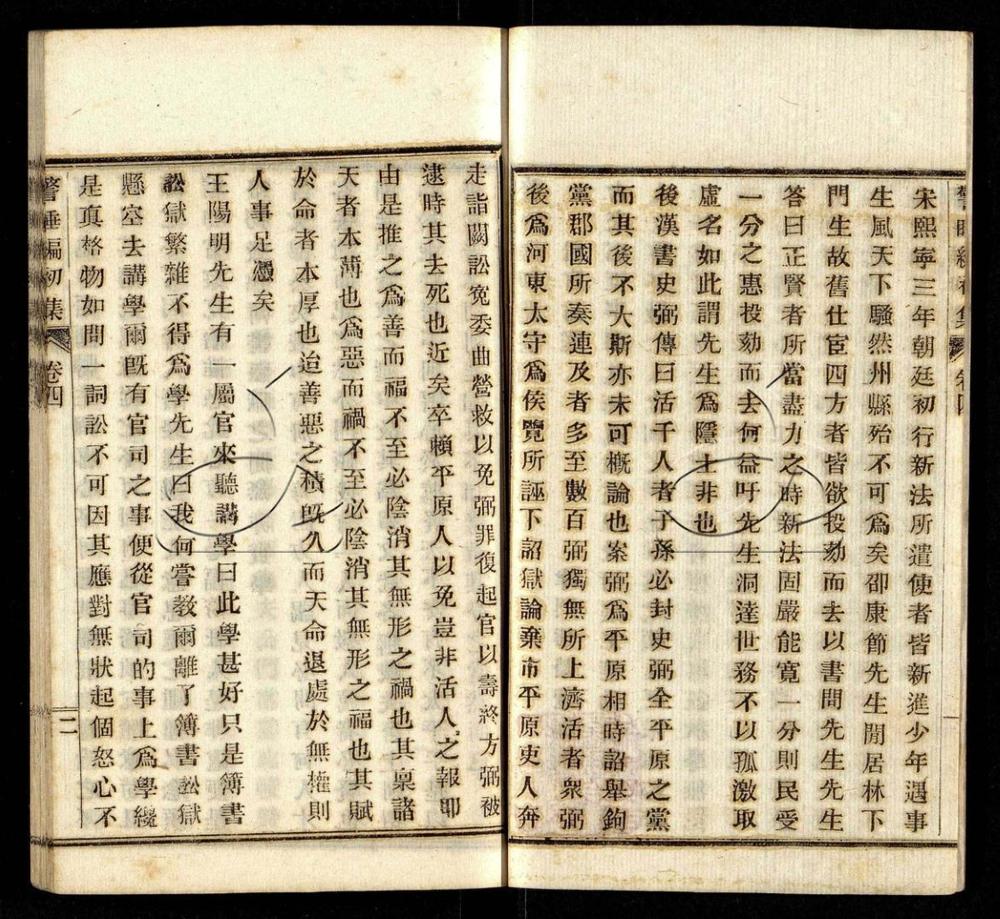 宋熙寧三年朝廷初行新法所遣使者皆新進少年遇事
生風天下騷然州縣殆不可爲矣卲康節先生閒居林下
門生故舊仕宦四方者皆欲投劾而去以書問先生先生
答曰正賢者所當盡力之時新法固嚴能寬一分則民受
一分之惠投劾而去何益吁先生洞達世務不以孤激取
虛名如此謂先生爲隱士非也
後漢書史弼傳曰活千人者子孫必封史弼全平原之黨
而其後不大斯亦未可概論也案弼爲平原相時詔舉鉤
黨郡國所奏連及者多至數百弼獨無所上濟活者衆弼
後爲河東太守爲侯覽所誣下詔獄論棄市平原吏人奔
走詣闕訟冤委曲營救以免弼罪復起官以壽終方弼被
逮時其去死也近矣卒賴平原人以免豈非活人之報卽
由是推之爲善而福不至必陰消其無形之禍也其稟諸
天者本薄也爲惡而禍不至必陰消其無形之福也其賦
於命者本厚也迨善惡之積旣久而天命退處於無權則
人事足憑矣
王陽明先生有一屬官來聽講學曰此學甚好只是簿書
訟獄繁雜不得爲學先生曰我何嘗教爾離了簿書訟獄
懸空去講學爾旣有官司之事便從官司的事上爲學纔
是眞格物如問一詞訟不可因其應對無狀起個怒心不
警睡編初集
卷四
二